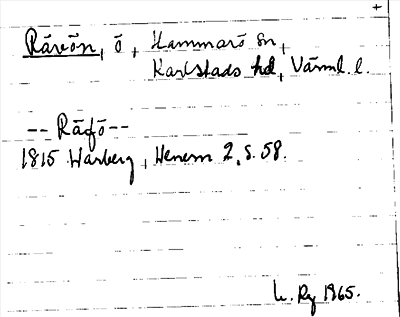 +
Råvön, ö, Hammarö sn,
Karlstads hd, Värml. l.
-- Råfö --
1815 Warberg, Henem 2, s. 58.
Ry 1965.